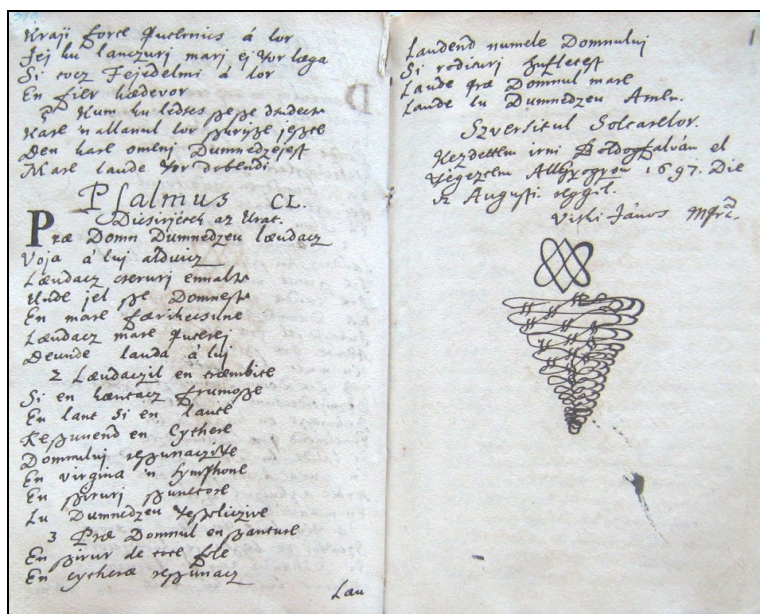 Kraji fore Puternics á lor
Jej ku lanczurj marj ej vor læga
Si tocz Fejedelmi á lor
En fier
3 Kum ku
Karé 'n allanul lor
Den karé omenj Dumnedzejest
Maré laude vor dobendi
Psalmus CL.
Dicsirjétek az Urat.
Præ Domn Dumnedzeu lændacz
Voja á luj
Lændacz cserurj ennalte
Unde jel sze Domneste
En maré
Lændacz maré Puterej
Deunde lauda á luj
2 Lændaczil en træmbice
Si en kæntacz frumosze
En lant Si en laute
Reszunend en Cythere
Domnuluj reszunaczile
En virgina 'n symphone
En szirurj szunetore
Lu Dumnedzeu
3 Præ Domnul en
En szirur de tote fele
En cytheræ reszunacz
Lau
Laudend numele Domnuluj
Si rodiurj szufletest
Laude præ Domnul mare
Laude lu Dumnedzeu Amen.
Szversitul Soltarelor.
Kezdettem irni Boldogfalván el
végeztem Allgyogyon 1697. Die
Augusti
Viski János mpr.